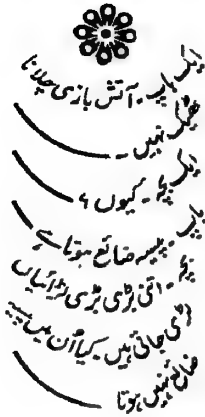 ایک باپ۔ آتش بازی چلانا
ٹھیک نہیں۔
ایک بچہ۔ کیوں؟
باپ۔ پیسہ ضائع ہوتا ہے
بچہ۔ اتنی بڑی بڑی لڑائیاں
لڑی جاتی ہیں۔ کیا اُن میں پیسہ
ضائع نہیں ہوتا